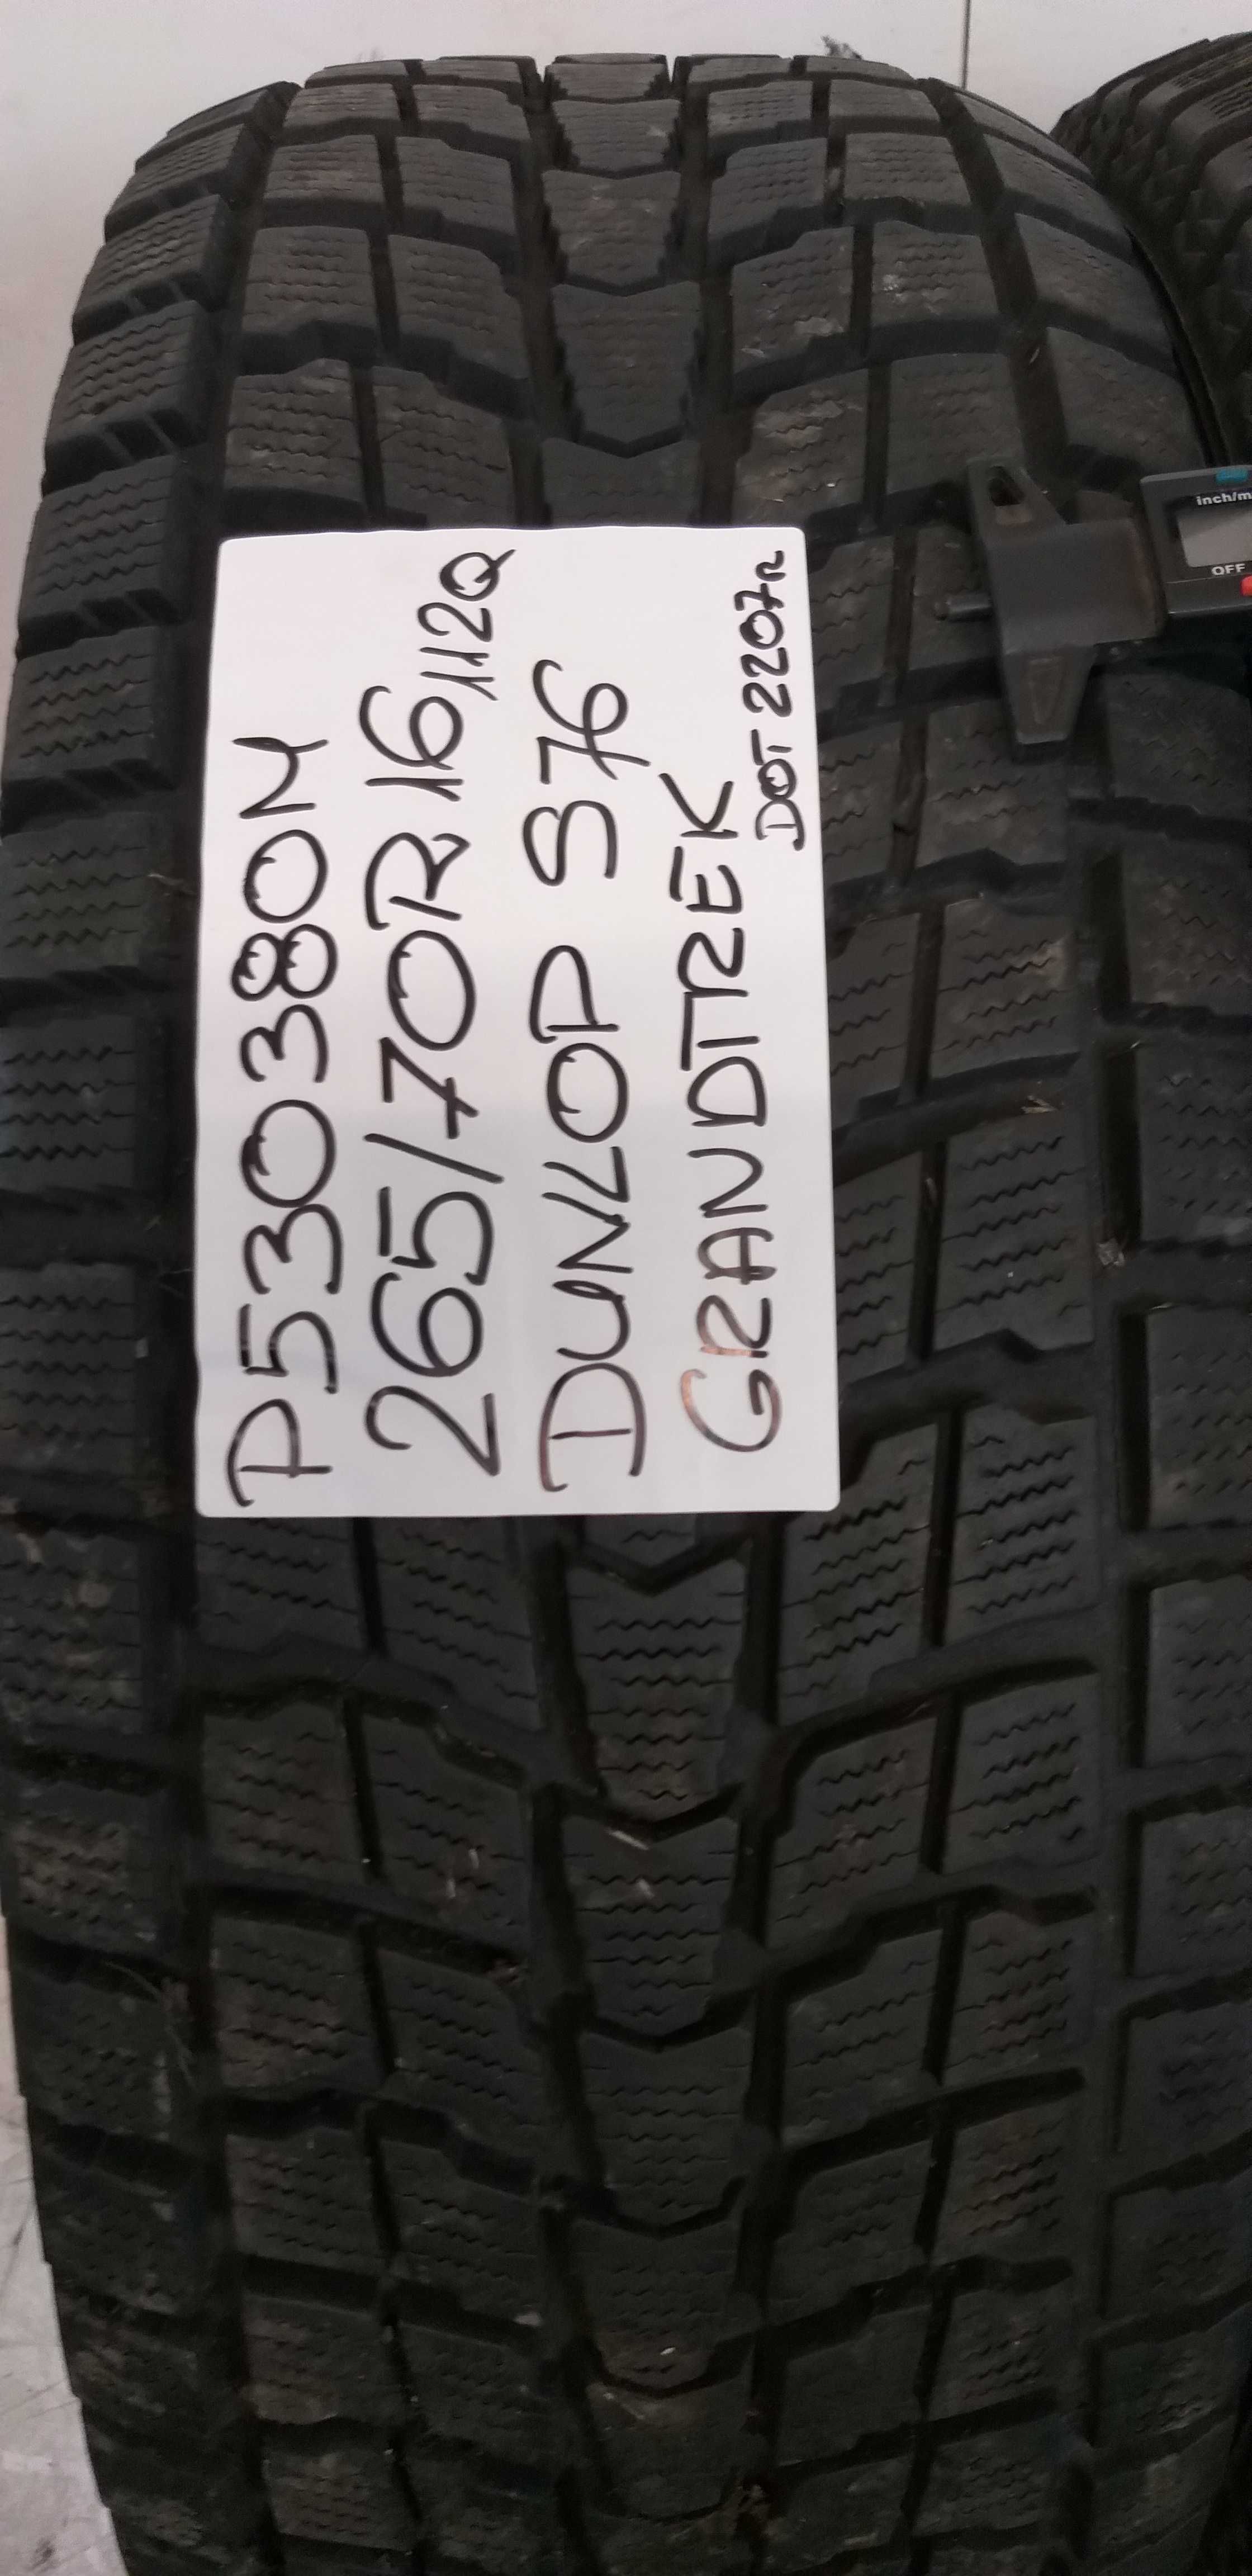 P530380M
265/70R16 112Q
DUNLOP S76
GRANDTREK
DOT 2207r
inch/m
OFF